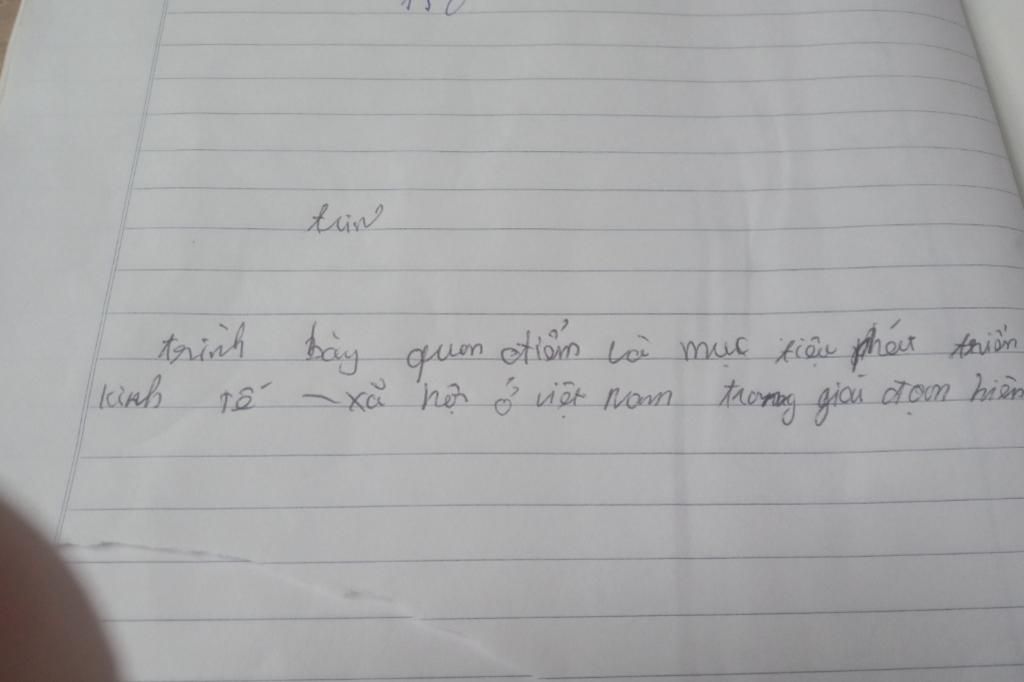 trình bày quan điểm và mục tiêu phát triển
kinh tế - xã hội ở việt Nam trong giai đoạn hiện